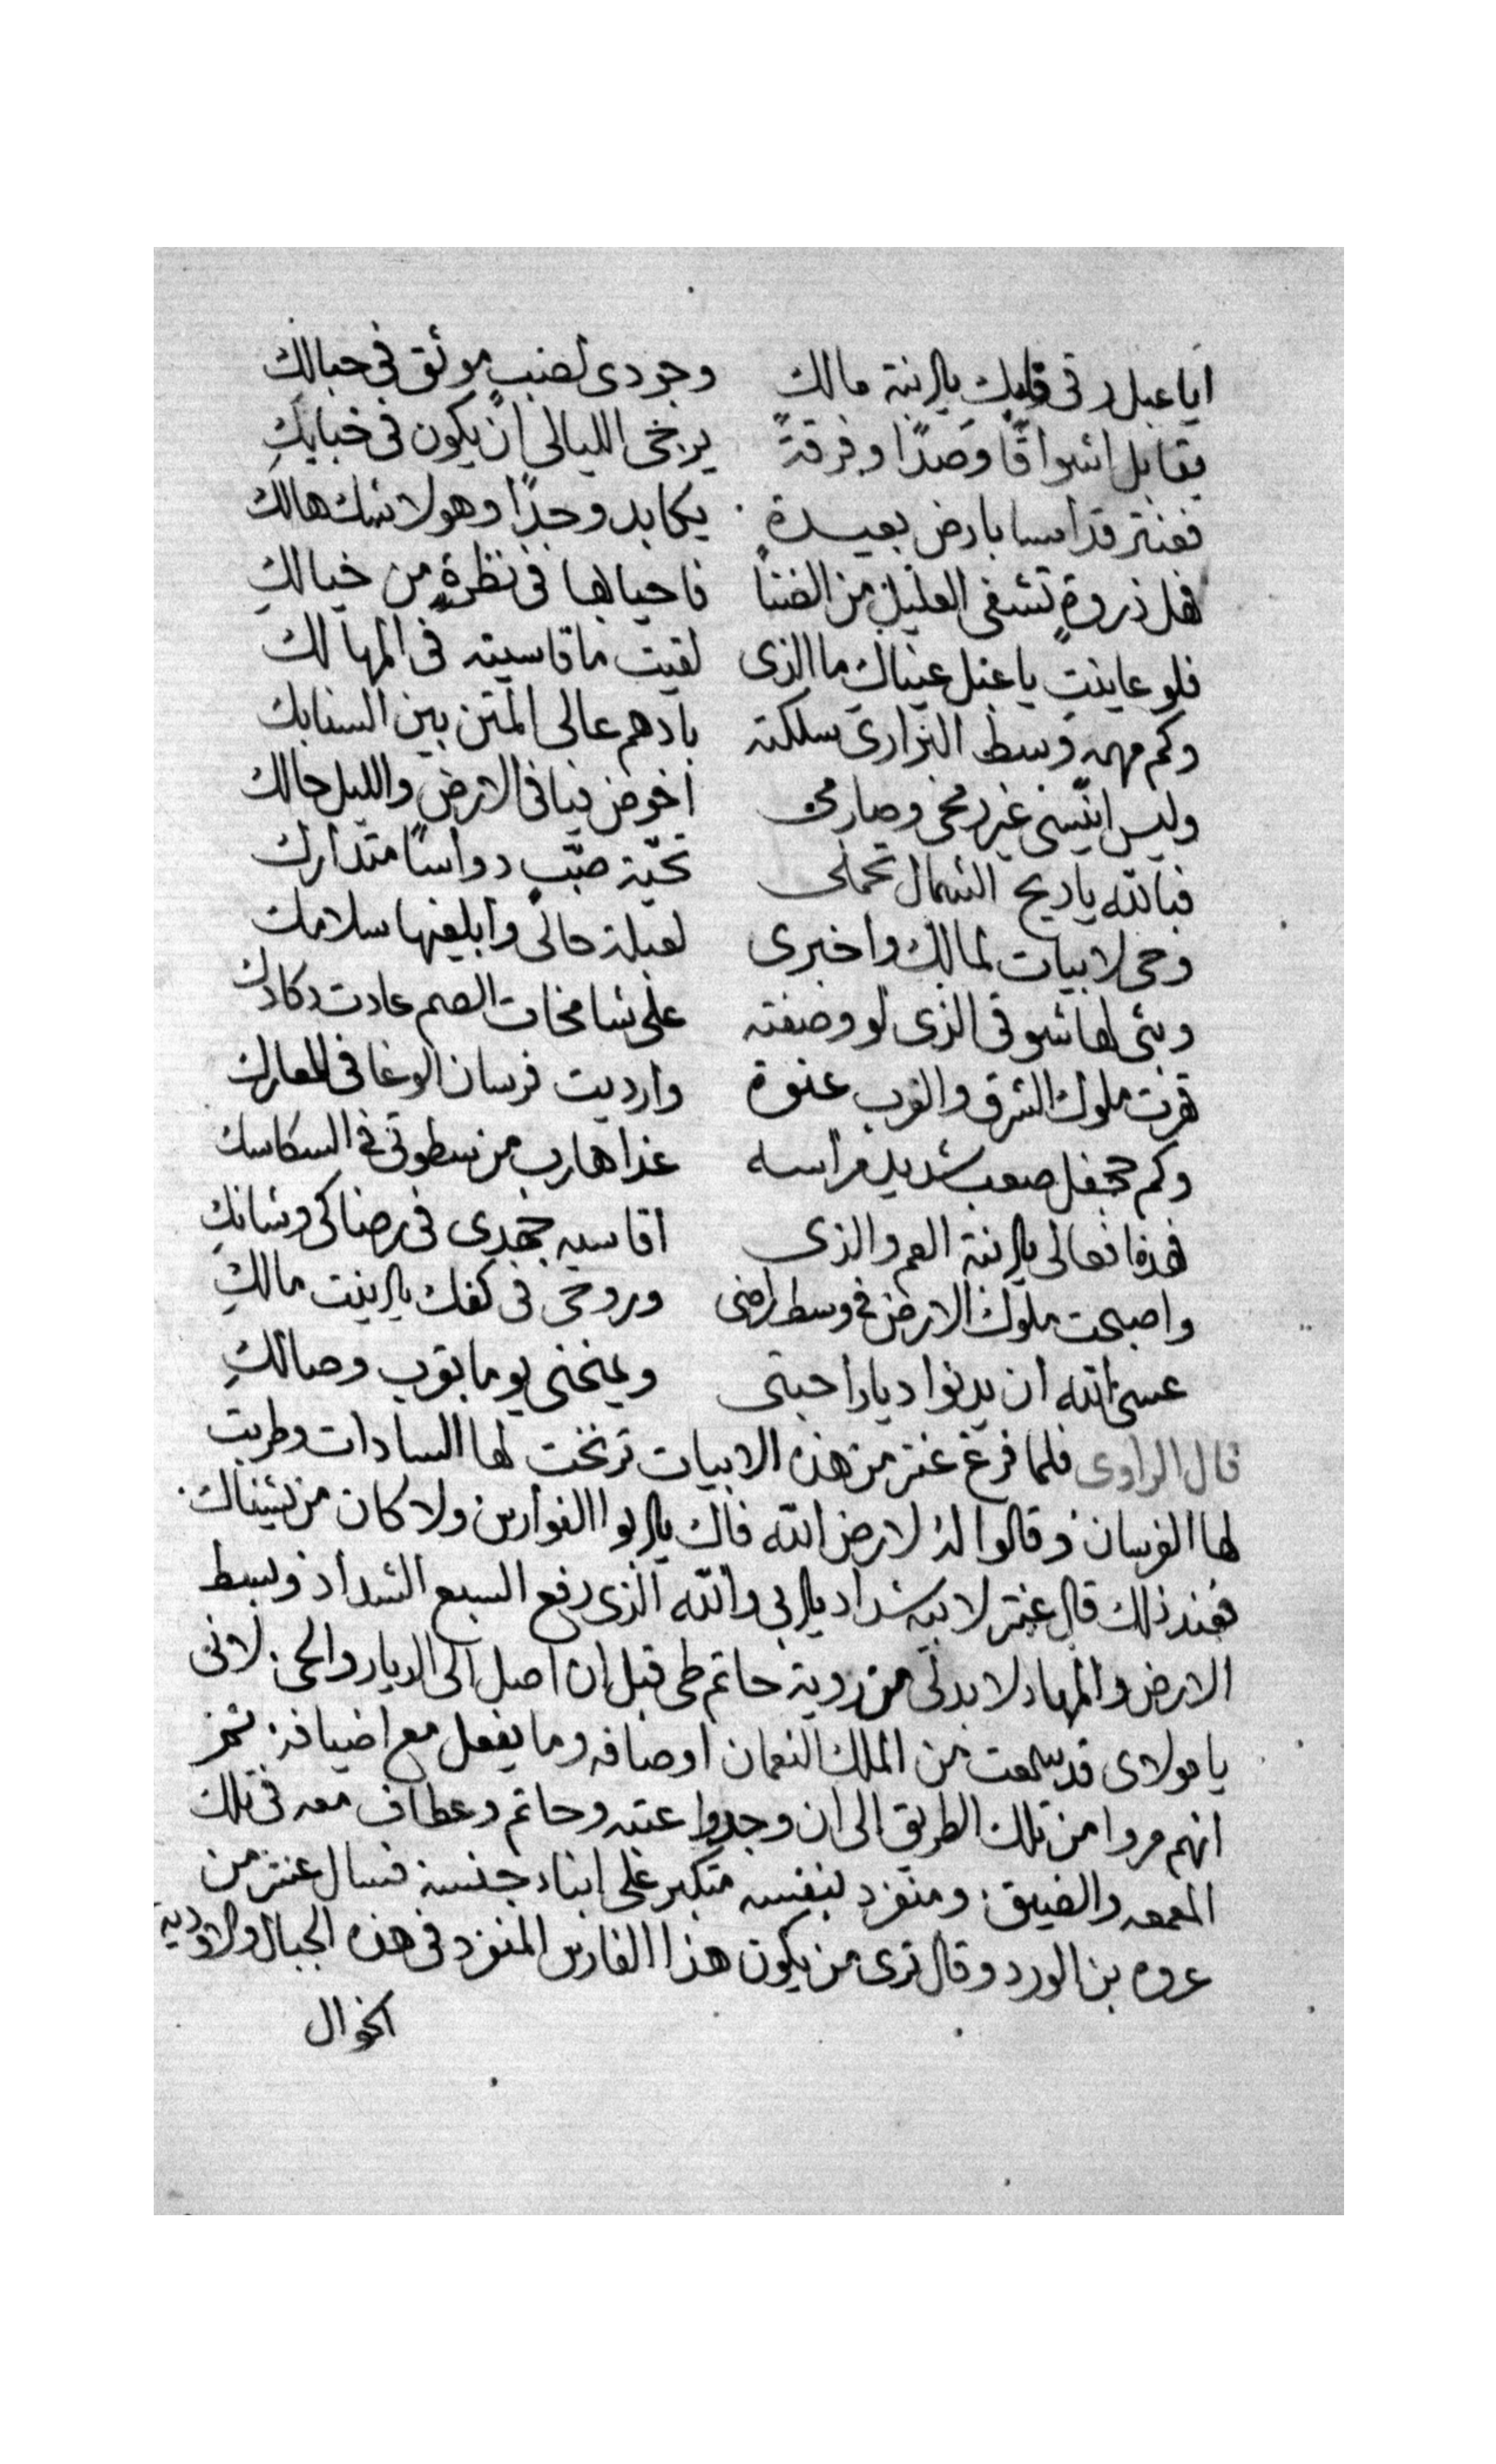 ايا عبل رقى قلبك يا ابنة مالك وجودى لصبٍ موثق فى حبالكِ
يقابل اشواقًا وصدًا وفرقةً يرجى الليالى ان يكون فى خبايكِ
فعنتر قد امسا بارض بعيدةٍ يكابد وجدًا وهو لا شك هالك
فهل زورةٍ تشفى العليل من الضنا فاحيا بها فى نظرةٍ من خيالكِ
فلو عاينتِ يا عبل عيناك ما الذى لقيت ما قاسيته فى المهالك
وكم مهمه وسط البرارى سلكته بادهم عالى المتن بين السنابك
وليس انيسى غير رمحى وصارمى اخوض فيافى الارض والليل حالك
فبالله يا ريح الشمال تحملى تحيّة صبّبٍ دواسًا متدارك
وحى لابيات لمالك واخبرى لعبلة حالى وابلغيها سلامك
وبثى لها شوقى الذى لو وصفته على شامخات الصم عادت دكادك
قهرت ملوك الشرق والغرب عنوة وارديت فرسان الوغا فى المعارك
وكم جحفل صعب شديد مراسه غدا هارب من سطوتى فى السكاسك
فهذا فعالى يا ابنة العم والذى اقاسيه بجهدى فى رضاكى وشانكِ
واصبحت ملوك الارض فى وسط راحتى وروحى فى كفك يا ابنت مالكِ
عسى الله ان يدنوا ديار احبتى ويمنحنى يوما بقرب وصالكِ
قال الراوى فلما فرغ عنتر من هذه الابيات ترنحت لها السادات وطربت
لها الفرسان وقالوا له لا رض الله فاك يا ابو الفوارس ولا كان من يشيناك
فعند ذلك قال عنتر لابيه شداد يا ابى والله الذى رفع السبع الشداد وبسط
الارض والمهاد لا بد لى من روية حاتم طى قبل ان اصل الى الديار والحى لانى
يا مولاى قد سمعت من الملك النعمان اوصافه وما يفعل مع اضيافه ثم
انهم مروا من تلك الطريق الى ان وجدوا عتبه وحاتم وعطاف معه فى تلك
المعمعه والضيق ومنفرد بنفسه متكبر على ابناء جنسه فسال عنتر من
عروه بن الورد وقال ترى من يكون هذا الفارس المنفرد فى هذه الجبال والاوديه